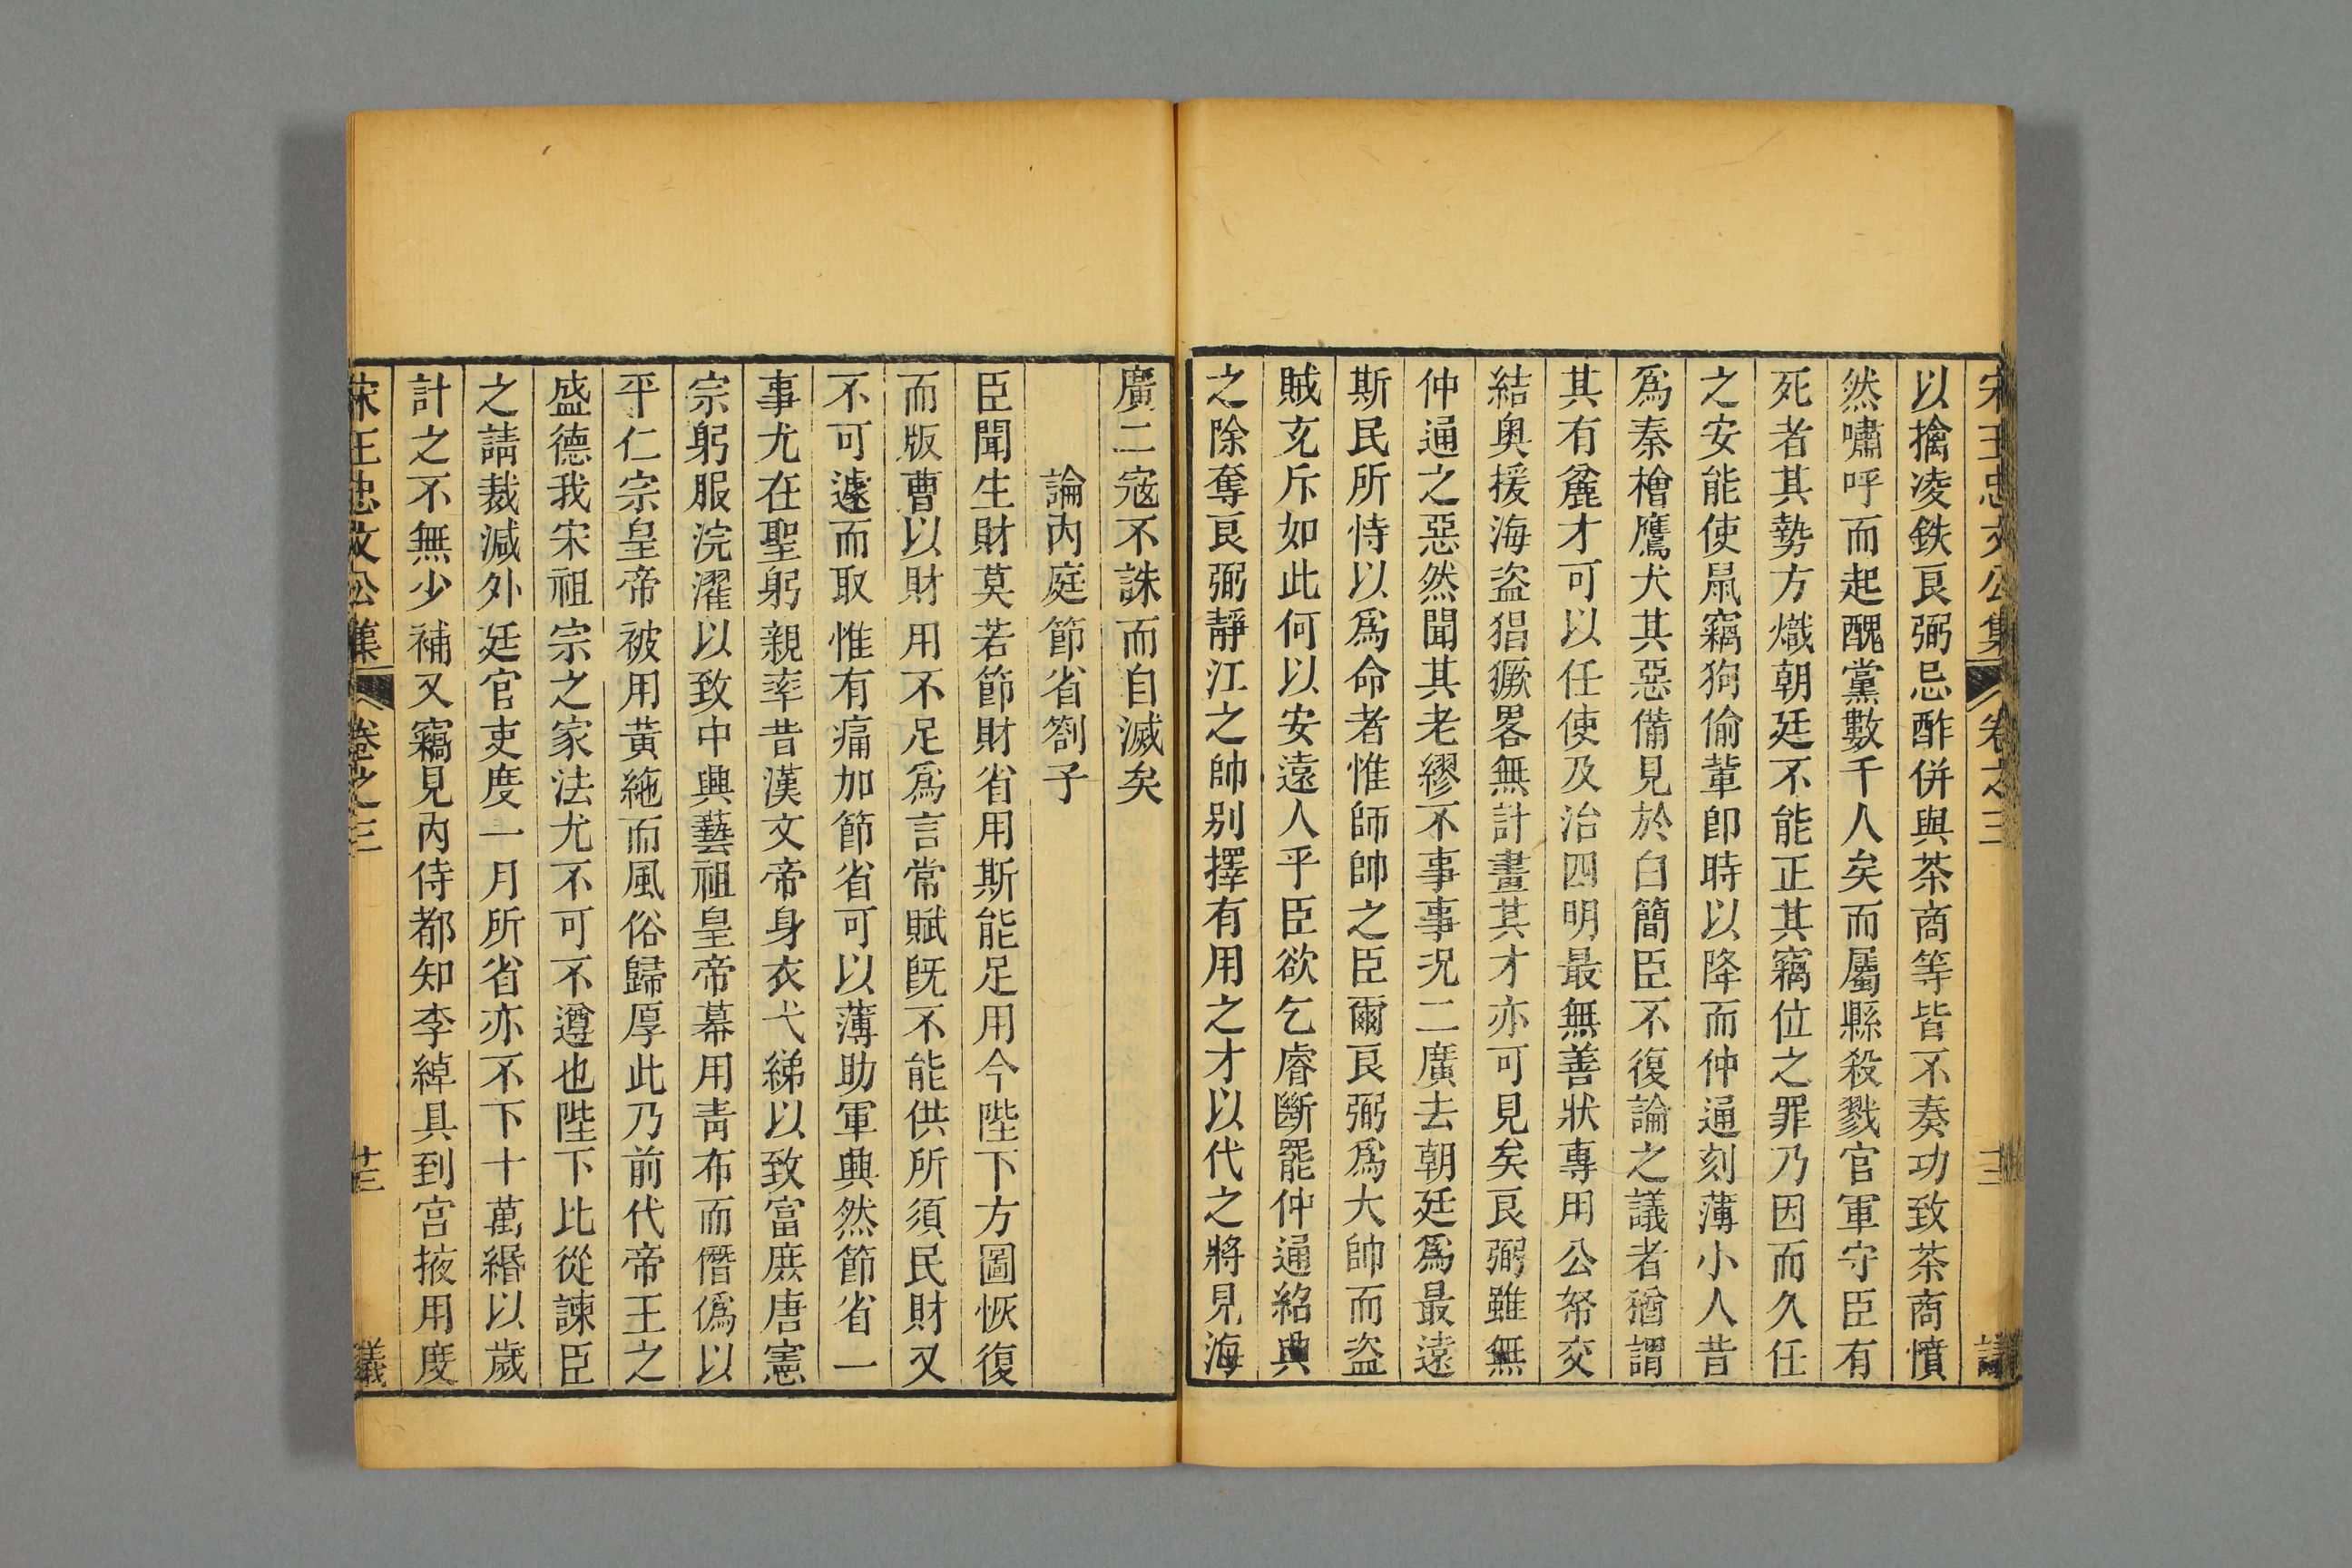 宋王忠文公集 卷之三
以擒凌鉄良弼忌酢併與茶商等皆不奏功致茶商憤
然嘯呼而起醜黨數千人矣而屬縣殺戮官軍守臣有
死者其勢方熾朝廷不能正其竊位之罪乃因而久任
之安能使鼠竊狗偷輩卽時以降而仲通刻薄小人昔
爲秦檜鷹犬其惡備見於白簡臣不復論之議者猶謂
其有麄才可以任使及治四明最無善狀專用公帑交
結奥援海盗猖獗畧無計畫其才亦可見矣良弼雖無
仲通之惡然聞其老繆不事事况二廣去朝廷爲最遠
斯民所恃以爲命者惟師帥之臣爾良弼爲大帥而盗
賊充斥如此何以安遠人乎臣欲乞睿斷罷仲通紹典
之除奪良弼靜江之帥别擇有用之才以代之將見海
廣二宼不誅而自滅矣
論内庭節省劄子
臣聞生財莫若節財省用斯能足用今陛下方圖恢復
而版曹以財用不足爲言常賦旣不能供所須民財又
不可遽而取惟有痛加節省可以薄助軍興然節省一
事尤在聖躬親率昔漢文帝身衣弋綈以致富庶唐憲
宗躬服浣濯以致中興藝祖皇帝幕用青布而僭僞以
平仁宗皇帝被用黃絁而風俗歸厚此乃前代帝王之
盛德我宋祖宗之家法尤不可不遵也陛下比從諫臣
之請裁減外廷官吏度一月所省亦不下十萬緡以歲
計之不無少補又竊見内侍都知李綽具到宫掖用度
宋王忠文公集 卷之三 廿三 議